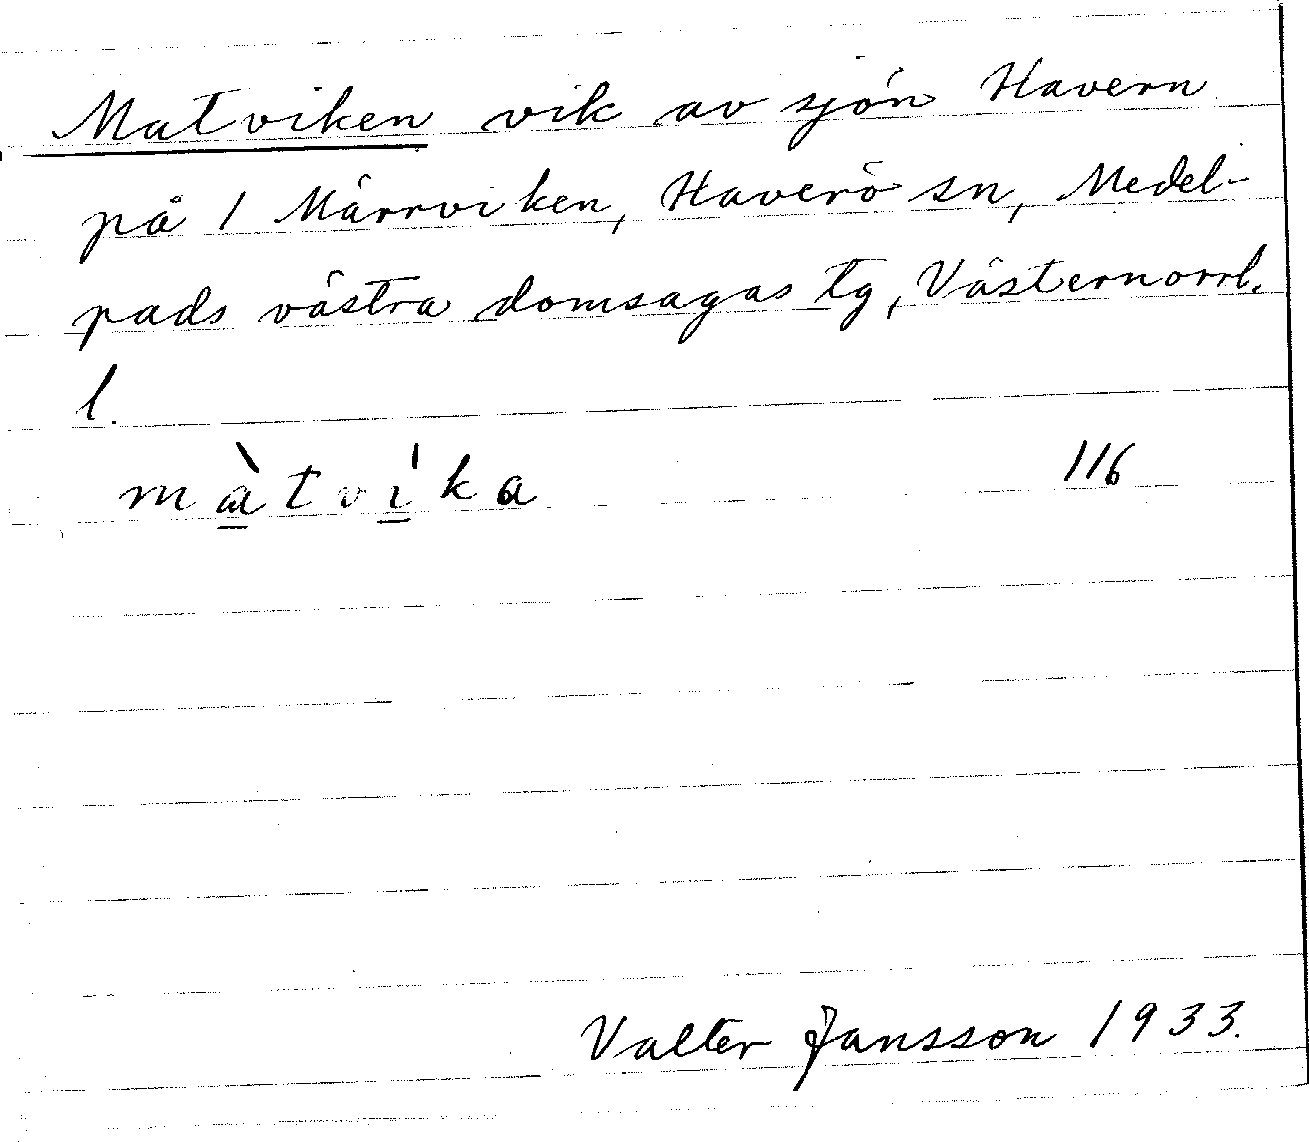 Matviken vik av sjön Havern
på 1 Märrviken, Haverö sn, Medel-
pads västra domsagas tg, Västernorrl.
l.
màtvíka 116
Valter Jansson 1933.